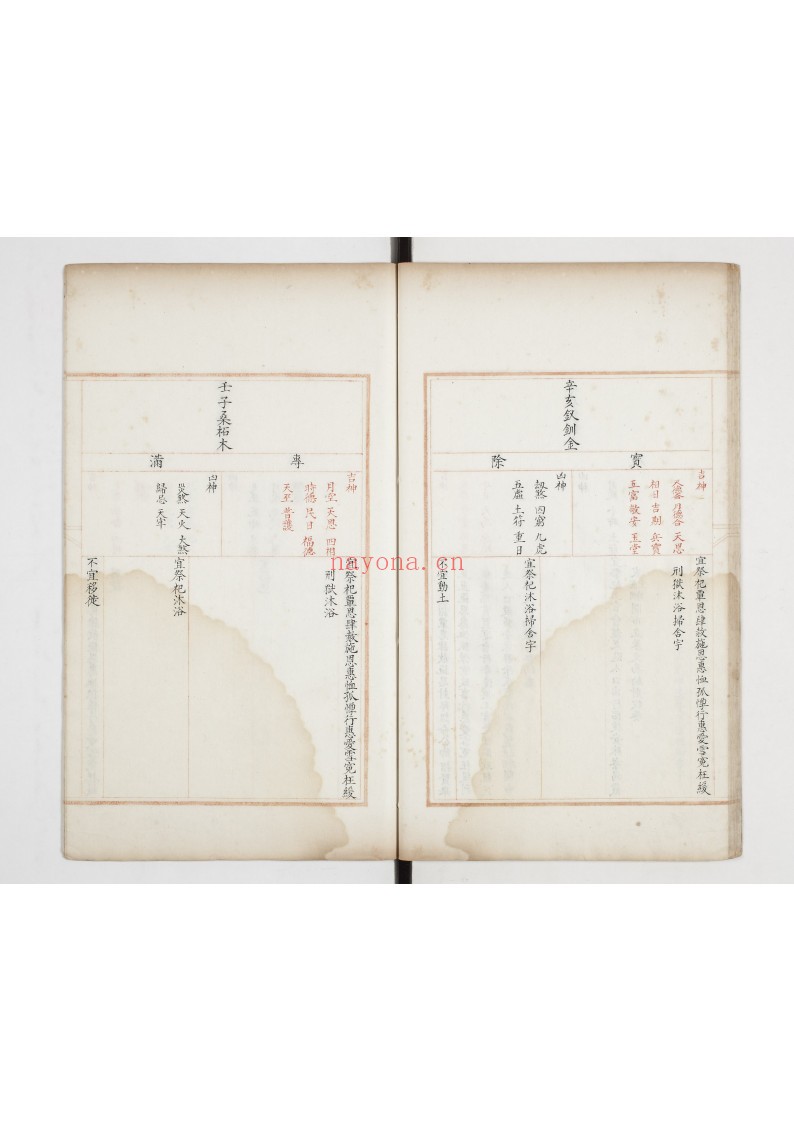 辛亥釵釧金
寶
除
吉神
天德合 月德合 天恩
相日 吉期 兵寶
五富 敬安 玉堂
凶神
刼煞 四窮 九虎
五虛 土符 重日
宜祭祀覃恩肆赦施恩惠恤孤惸行惠愛雪寃枉緩
刑獄沐浴掃舍宇
宜祭祀沐浴掃舍宇
不宜動土
壬子桑柘木
專
滿
吉神
月空 天恩 四相
時德 民日 福德
天巫 普護
凶神
災煞 天火 大煞
歸忌 天牢
宜祭祀覃恩肆赦施恩惠恤孤惸行惠愛雪寃枉緩
刑獄沐浴
宜祭祀沐浴
不宜移徙
nayona.cn